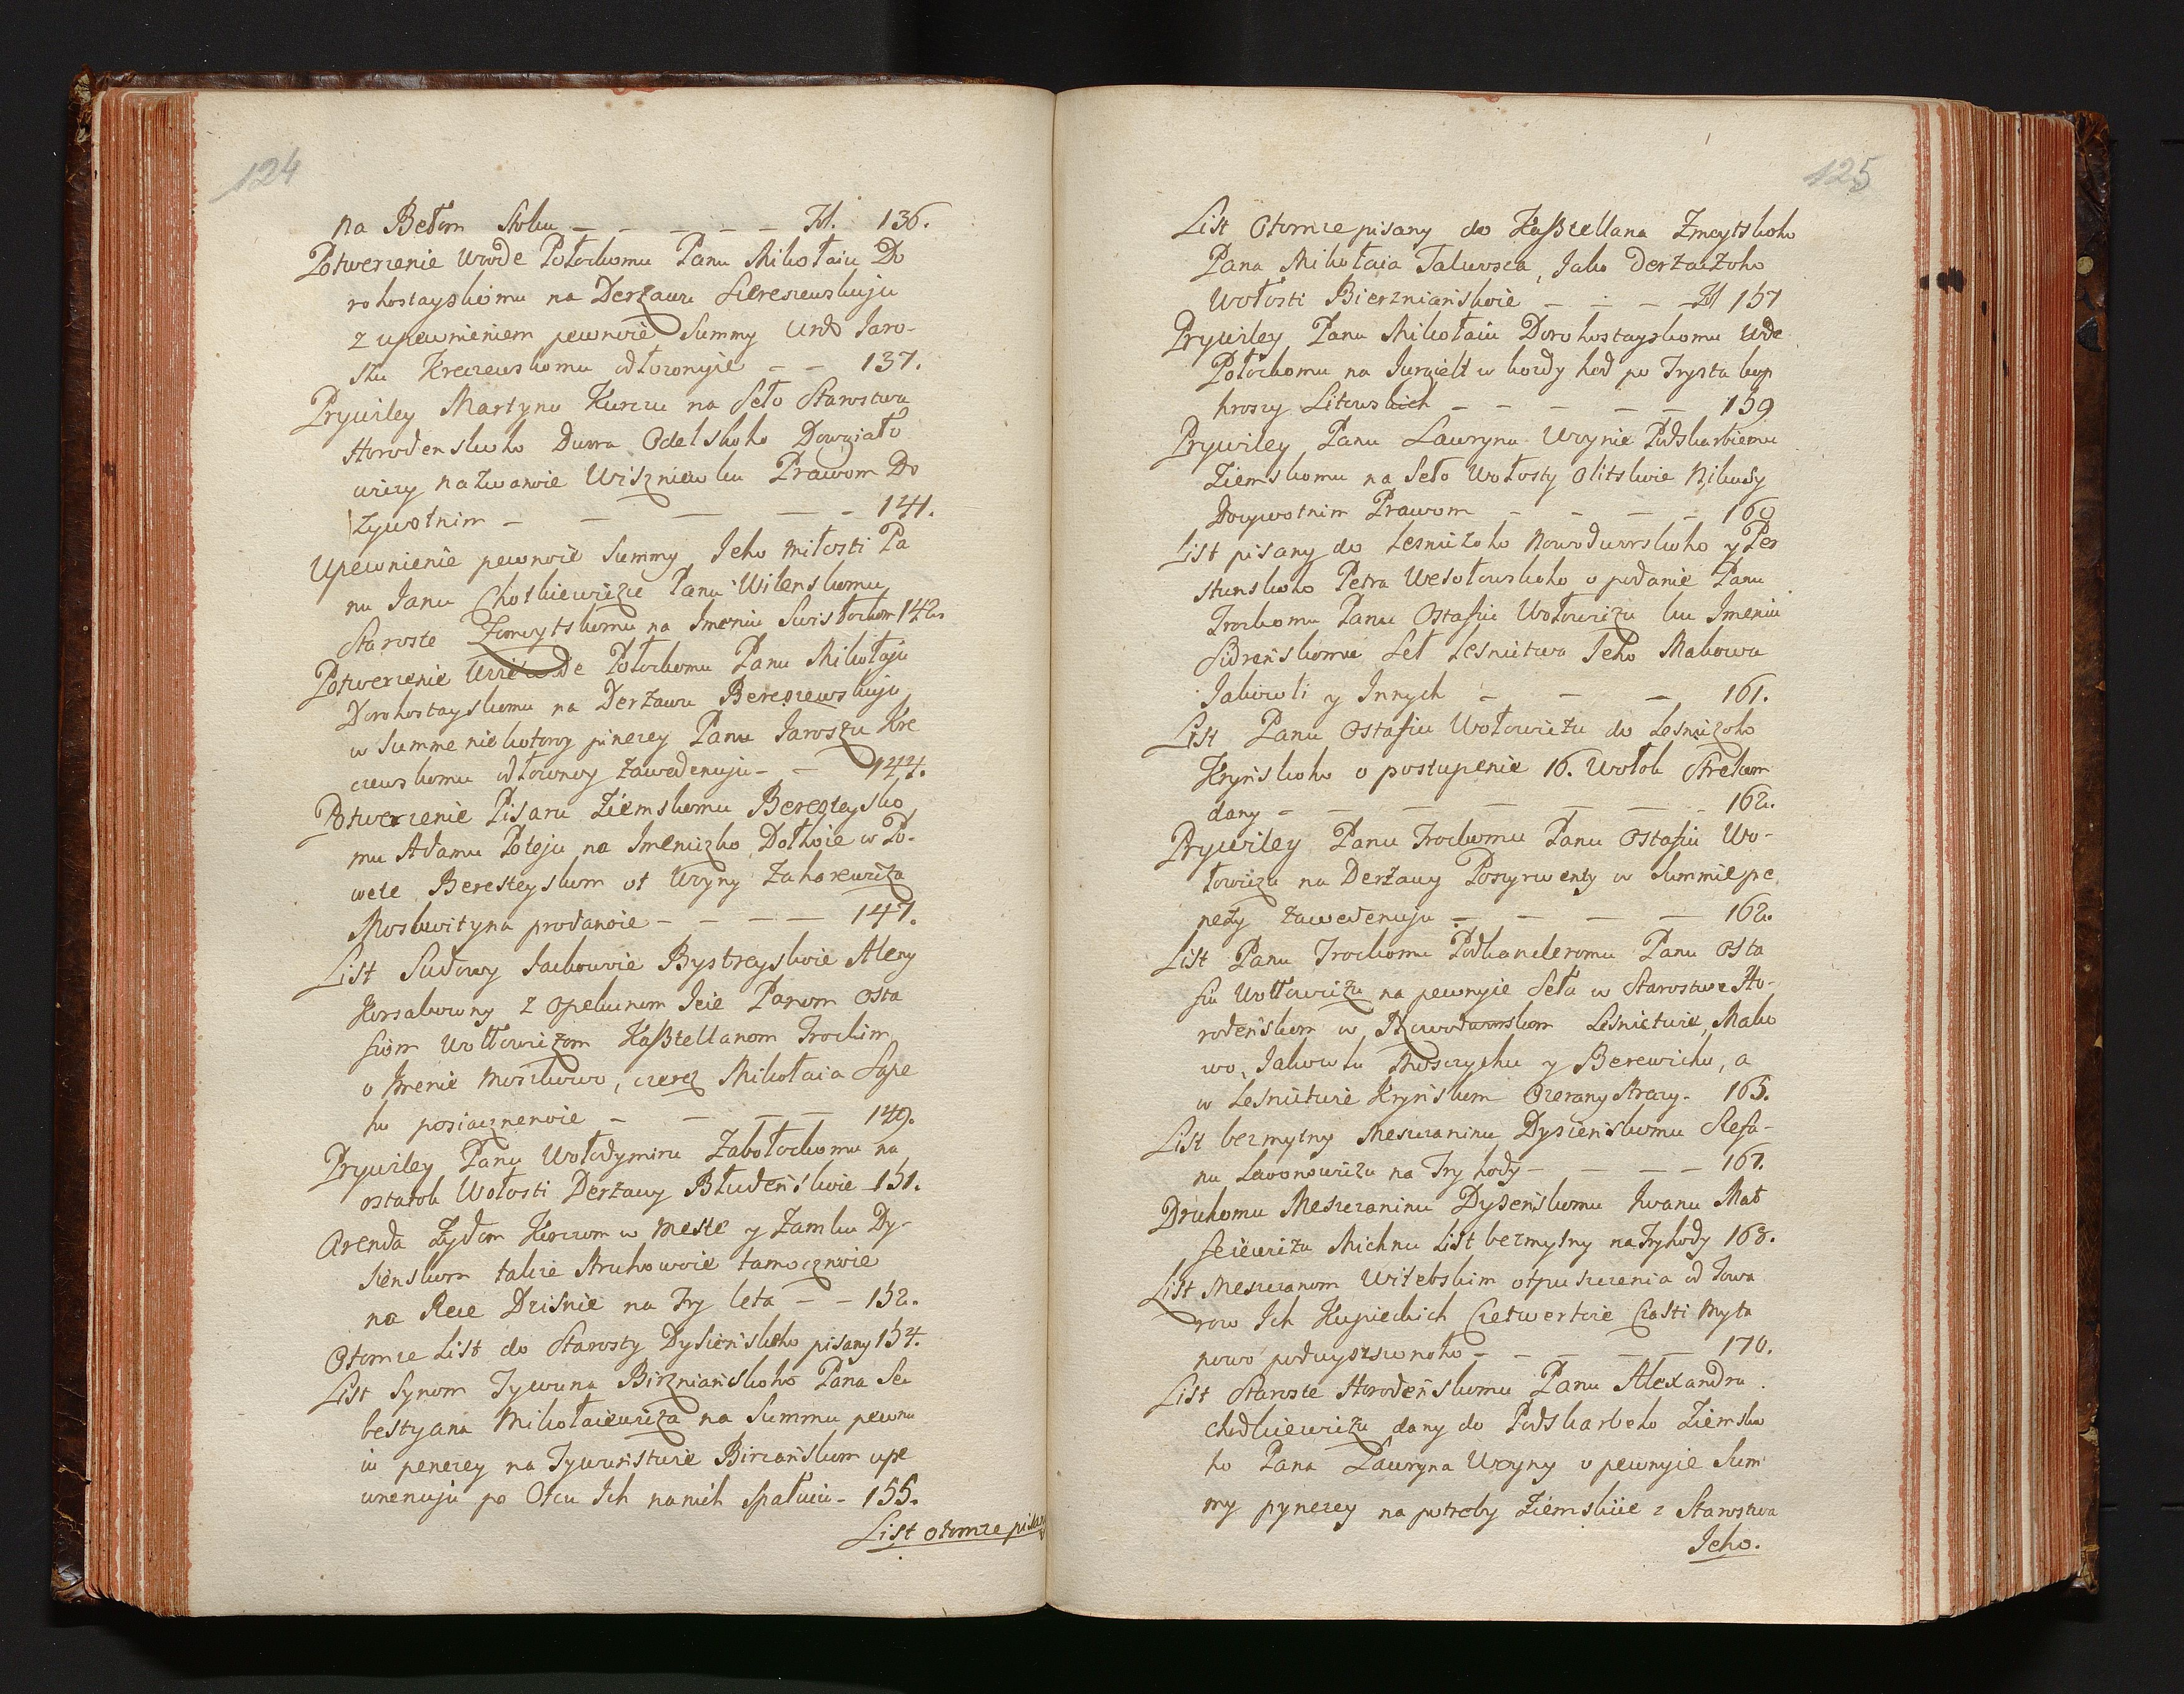 124
na Bełom Stoku - - - - - - Fol. 136.
Potwerzenie Wwde Połockomu Panu Mikołaiu Do
rohostayskomu na Derżawu Szereszewskuju
z upewnieniem pewnoie Summy Urod Jaro-
szu Kreczewskomu odłożonyie - - 137.
Prywiley Martynu Kurczu na Seło Starostwa
Horodenskoho Dwora Odelskoho Dowgiało
wiczy nazwanoie Wiszniewku Prawom Do
żywotnim - - - - - 141.
Upewnienie pewnoie Summy Jeho miłosti Pa
nu Janu Chotkiewiczu Panu Wilenskomu
Staroste Żomoytskomu na Imeniu Swisłockom 142.
Potwerzenie Wwde Połockomu Panu Mikołaju
Dorohostayskomu na Derżawu Bereszewskuju
w Summe niekotoroy pinezey Panu Jaroszu Kre
czewskomu odłownoy zawedenuju - - 144.
Potwerzenie Pisaru Ziemskomu Beresteysko
mu Adamu Poteju na Imeniczko Dołhoie w Po-
wete Beresteyskom ot Woyny Zaharewicza
Moskwityna prodanoie - - - - 147.
List Sudowy Jackowoie Bystreyskoie Aleny
Korsakowny z Opekunom Jeie Panom Osta
fiom Wołłowiczom Kasztellanom Trockim
o Imenie Moszkowo, czerez Mikołaia Sape
hu posiaznenoie - - - - 149.
Prywiley Panu Wołodymiru Zabołockomu na
ostatok Wołosti Derżawy Błudeńskoie 151.
Arenda Żydom Korczom w meste y Zamku Dy-
sienskom także Struhowoie tamocznoie
na Rece Dzisnie na Try leta - - 152.
Otomże List do Starosty Dysieńskoho pisany 154.
List Synom Tywuna Birzniańskoho Pana Se
bestyana Mikołaiewicza na Summu pewnu
iu penezey na Tywuństwie Birzańskom upe
wnenuju po Otcu Ich na nich Spałuiu - 155.
List otomże pisany
125
List Otomże pisany do Kasztellana Żmoytskoho
Pana Mikołaia Talwosza, Jako Derżaczoho
Wołosti Bierzniańskoie - - - - Fol 157
Prywiley Panu Mikołaiu Dorohostayskomu Wde
Połockomu na Jurgielt w kożdy hod po Trysta kop
hroszy Litowskich - - - - - 159
Prywiley Panu Ławrynu Woynie Podskarbiemu
Ziemskomu na Seło Wołosty Olitskoie Nikudy
Dożywotnim Prawom - - - - 160
List pisany do Lesniczoho Nowodworskoho y Per
stunskoho Petra Wesołowskoho o podanie Panu
Trockomu Panu Ostafiu Wołowiczu ku Imeniu
Sidreńskomu Seł Lesnictwa Jeho Makowa
Jakowli y Innych - - - 161.
List Panu Ostafiu Wołowiczu do Lesniczoho
Kryńskoho o postupenie 16. Wołok Strelcom
dany - - - - - - 162.
Prywiley Panu Trockomu Panu Ostafiu Wo-
łowiczu na Derżawy Poszyrwenty w Summie pe
nezy zawedenuju - - - - 162.
List Panu Trockomu Podkancleromu Panu Osta
fiu Wołłowiczu na pewnyie Seła w Starostwe Ho-
rodeńskom w Nowodworskom Lesnictwie, Mako
wo, Jakowlu Moszczychu y Berewichu, a
w Lesnictwie Kryńskom Ozerany Straży - 165.
List bezmytny Meszczaninu Dysieńskomu Stefa-
nu Lewonowiczu na Try hody - - - - 167.
Druhomu Meszczaninu Dyseńskomu Iwanu Mat
feiewiczu Michnu List bezmytny na Try hody 168.
List Meszczanom Witebskim otpuszczenia od Towa
row Ich Kupieckich Czetwertoie Czasti Myta
nowo podwyszszonoho - - - - - 170.
List Staroste Horodeńskomu Panu Alexandru
Chodkiewiczu dany do Podskarbeho Ziemsko
ho Pana Ławryna Woyny o pewnyie Sum
my pynezey na potreby Ziemskiie z Starostwa
Jeho.